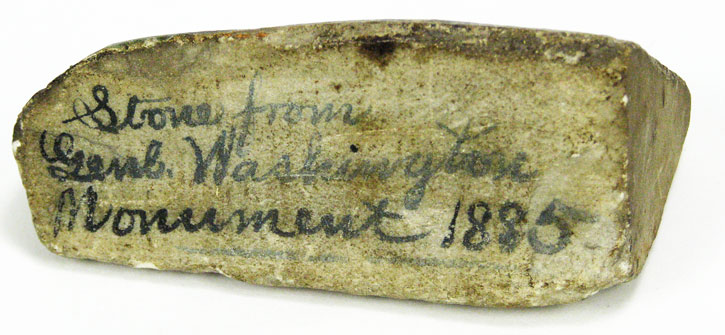 Stone from
Genl. Washington
Monument 1885